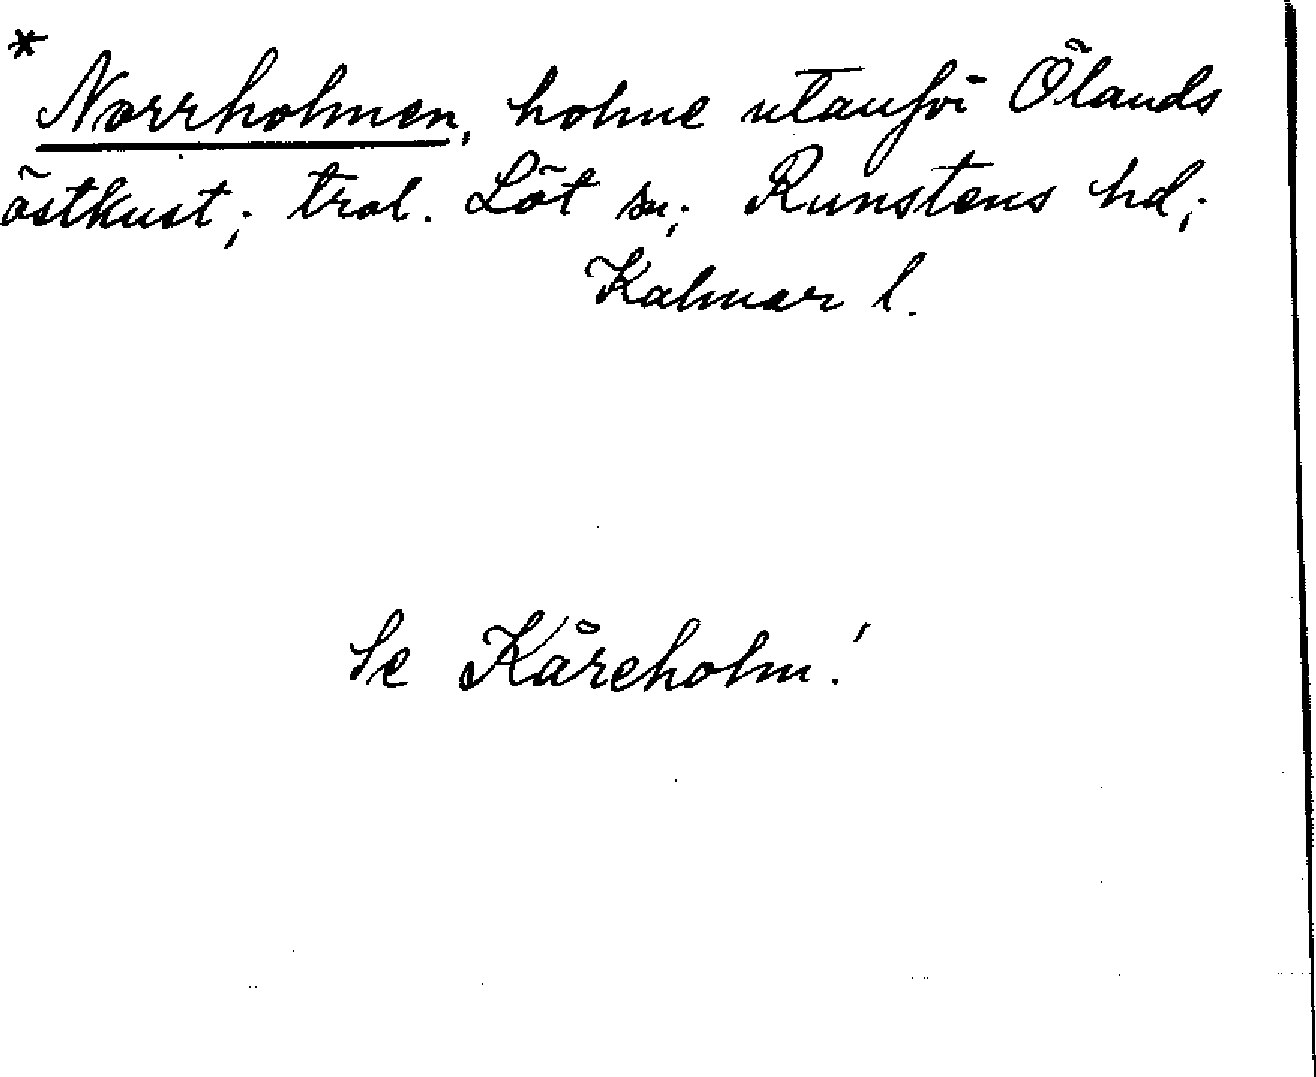 *
Norrholmen, holme utanför Ölands
östkust; trol. Löt sn; Runstens hd;
Kalmar l.
Se Kåreholm!